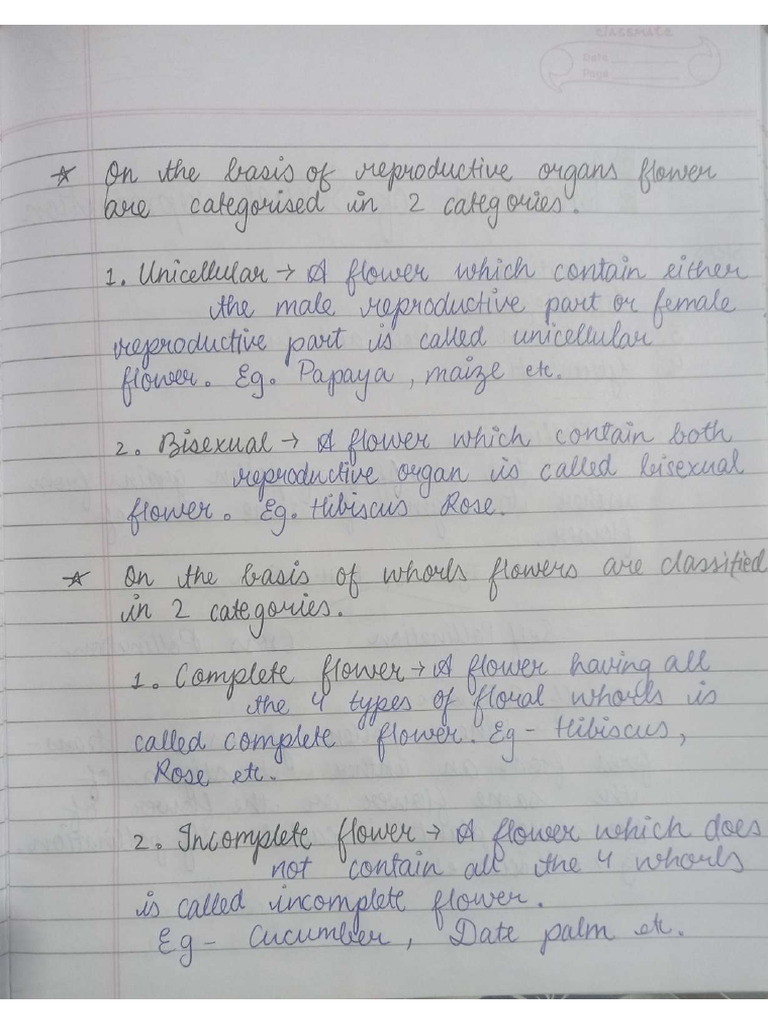 classmate
Date
Page
☆ On the basis of reproductive organs flower
are categorised in 2 categories.
1. Unicellular → A flower which contain either
the male reproductive part or female
reproductive part is called unicellular
flower. Eg. Papaya, maize etc.
2. Bisexual → A flower which contain both
reproductive organ is called bisexual
flower. Eg. Hibiscus Rose.
☆ On the basis of whorls flowers are classified
in 2 categories.
1. Complete flower → A flower having all
the 4 types of floral whorls is
called complete flower. Eg - Hibiscus,
Rose etc.
2. Incomplete flower → A flower which does
not contain all the 4 whorls
is called incomplete flower.
Eg - Cucumber, Date palm etc.